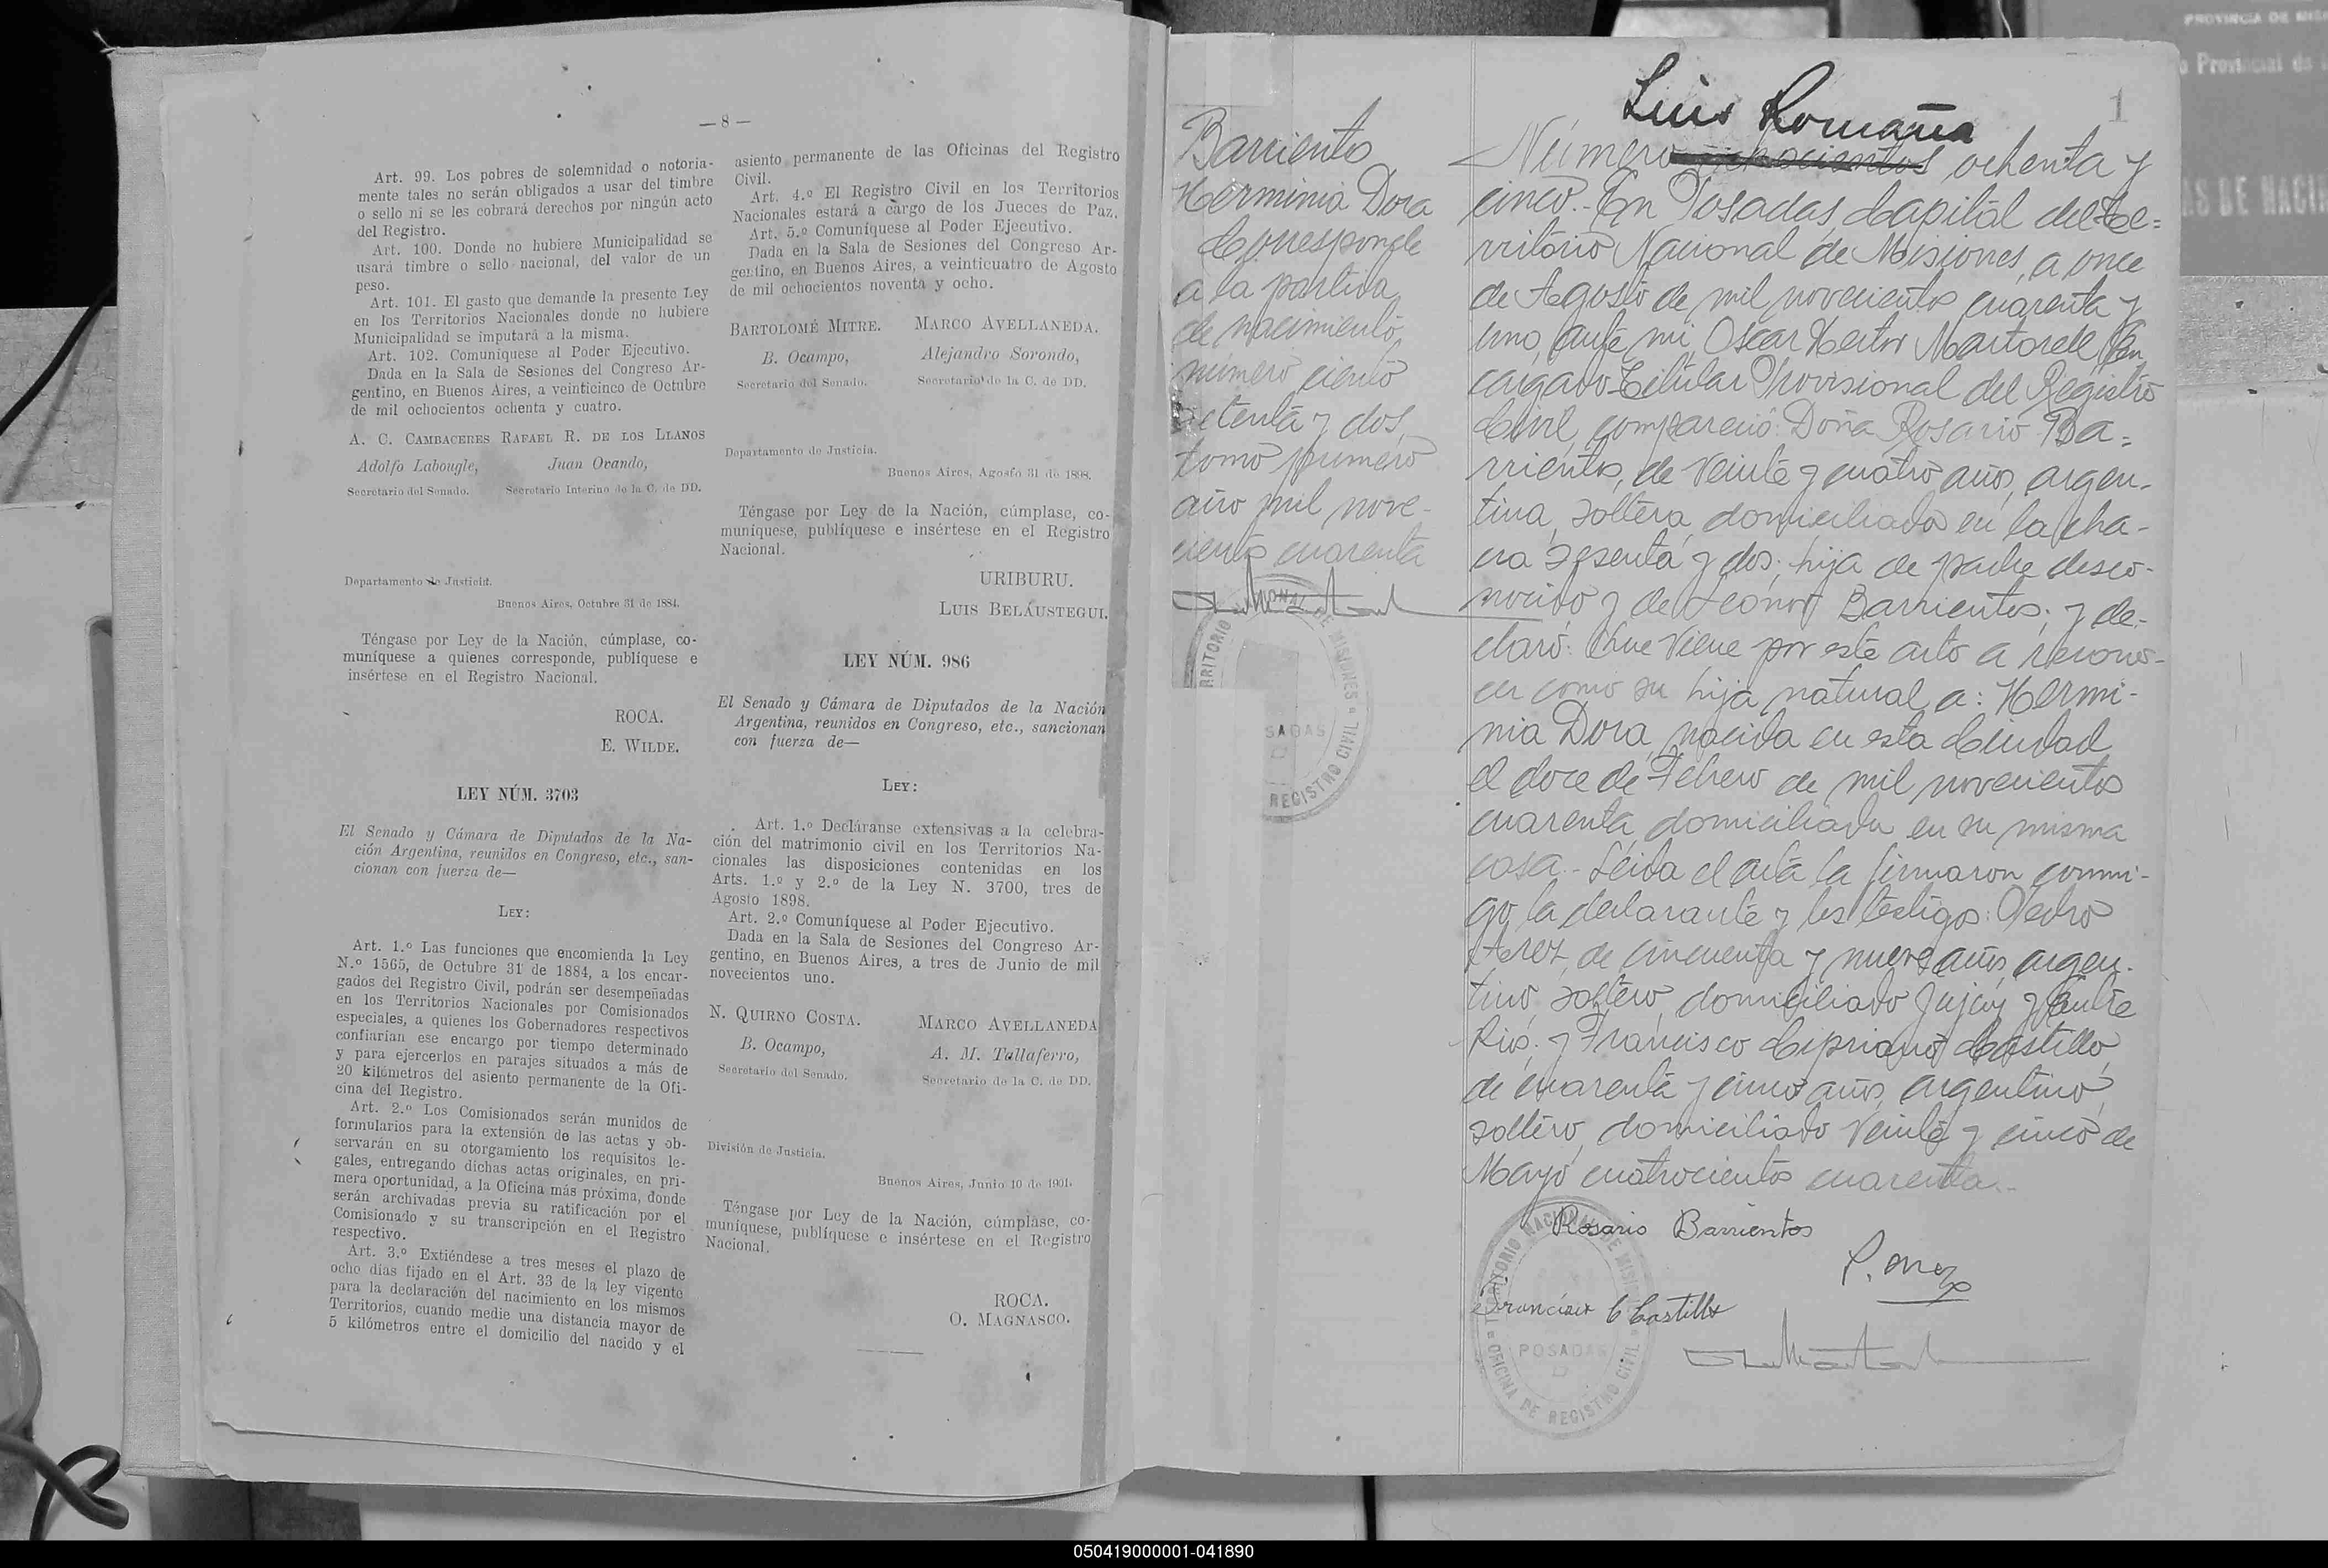 — 8 —
Art. 99. Los pobres de solemnidad o notoria-
mente tales no serán obligados a usar del timbre
o sello ni se les cobrará derechos por ningún acto
del Registro.
Art. 100. Donde no hubiere Municipalidad se
usará timbre o sello nacional, del valor de un
peso.
Art. 101. El gasto que demande la presente Ley
en los Territorios Nacionales donde no hubiere
Municipalidad se imputará a la misma.
Art. 102. Comuníquese al Poder Ejecutivo.
Dada en la Sala de Sesiones del Congreso Ar-
gentino, en Buenos Aires, a veinticinco de Octubre
de mil ochocientos ochenta y cuatro.
A. C. CAMBACERES RAFAEL R. DE LOS LLANOS
Adolfo Labougle, Juan Ovando,
Secretario del Senado. Secretario Interino de la C. de DD.
Departamento de Justicia.
Buenos Aires, Octubre 31 de 1884.
Téngase por Ley de la Nación, cúmplase, co-
muníquese a quienes corresponde, publíquese e
insértese en el Registro Nacional.
ROCA.
E. WILDE.
LEY NÚM. 3703
El Senado y Cámara de Diputados de la Na-
ción Argentina, reunidos en Congreso, etc., san-
cionan con fuerza de—
LEY:
Art. 1.º Las funciones que encomienda la Ley
N.º 1565, de Octubre 31 de 1884, a los encar-
gados del Registro Civil, podrán ser desempeñadas
en los Territorios Nacionales por Comisionados
especiales, a quienes los Gobernadores respectivos
confiarían ese encargo por tiempo determinado
y para ejercerlos en parajes situados a más de
20 kilómetros del asiento permanente de la Ofi-
cina del Registro.
Art. 2.º Los Comisionados serán munidos de
formularios para la extensión de las actas y ob-
servarán en su otorgamiento los requisitos le-
gales, entregando dichas actas originales, en pri-
mera oportunidad, a la Oficina más próxima, donde
serán archivadas previa su ratificación por el
Comisionado y su transcripción en el Registro
respectivo.
Art. 3.º Extiéndese a tres meses el plazo de
ocho días fijado en el Art. 33 de la ley vigente
para la declaración del nacimiento en los mismos
Territorios, cuando medie una distancia mayor de
5 kilómetros entre el domicilio del nacido y el
asiento permanente de las Oficinas del Registro
Civil.
Art. 4.º El Registro Civil en los Territorios
Nacionales estará a cargo de los Jueces de Paz.
Art. 5.º Comuníquese al Poder Ejecutivo.
Dada en la Sala de Sesiones del Congreso Ar-
gentino, en Buenos Aires, a veinticuatro de Agosto
de mil ochocientos noventa y ocho.
BARTOLOMÉ MITRE. MARCO AVELLANEDA.
B. Ocampo, Alejandro Sorondo,
Secretario del Senado. Secretario de la C. de DD.
Departamento de Justicia.
Buenos Aires, Agosto 31 de 1898.
Téngase por Ley de la Nación, cúmplase, co-
muníquese, publíquese e insértese en el Registro
Nacional.
URIBURU.
LUIS BELÁUSTEGUI.
LEY NÚM. 986
El Senado y Cámara de Diputados de la Nación
Argentina, reunidos en Congreso, etc., sancionan
con fuerza de—
LEY:
Art. 1.º Decláranse extensivas a la celebra-
ción del matrimonio civil en los Territorios Na-
cionales las disposiciones contenidas en los
Arts. 1.º y 2.º de la Ley N. 3700, tres de
Agosto 1898.
Art. 2.º Comuníquese al Poder Ejecutivo.
Dada en la Sala de Sesiones del Congreso Ar-
gentino, en Buenos Aires, a tres de Junio de mil
novecientos uno.
N. QUIRNO COSTA. MARCO AVELLANEDA
B. Ocampo, A. M. Tallaferro,
Secretario del Senado. Secretario de la C. de DD.
División de Justicia.
Buenos Aires, Junio 10 de 1901.
Téngase por Ley de la Nación, cúmplase, co-
muníquese, publíquese e insértese en el Registro
Nacional.
ROCA.
O. MAGNASCO.
Barrientos
Herminia Dora
Corresponde
a la partida
de nacimiento
número ciento
setenta y dos,
tomo primero
año mil nove-
cientos cuarenta
TERRITORIO NACIONAL DE MISIONES
POSADAS
REGISTRO CIVIL
Luis Romaña
1
Número ochocientos ochenta y
cinco.- En Posadas, Capital del Te=
rritorio Nacional de Misiones, a once
de Agosto de mil novecientos cuarenta y
uno, ante mi Oscar Hector Martorell, En
cargado Titular Provisional del Registro
Civil, compareció: Doña Rosario Ba=
rrientos, de veinte y cuatro años, argen-
tina, soltera, domiciliada en la cha-
cra sesenta y dos; hija de padre desco-
nocido y de Leonor Barrientos; y de-
claró: Que viene por este acto a recono-
cer como su hija natural a: Hermi-
nia Dora, nacida en esta Ciudad
el doce de Febrero de mil novecientos
cuarenta, domiciliada en su misma
casa.- Leida el acta la firmaron conmi-
go, la declarante y los testigos: Pedro
Arez, de cincuenta y nueve años, argen-
tino, soltero, domiciliado Jujuy y Entre
Rios; y Francisco Cipriano Castillo,
de cuarenta y cinco años, argentino,
soltero, domiciliado Veinte y cinco de
Mayo cuatrocientos cuarenta.-
Rosario Barrientos
Francisco C Castillo
TERRITORIO NACIONAL DE MISIONES
POSADAS
OFICINA DE REGISTRO CIVIL
PROVINCIA DE
Provincial de
AS DE NACI
050419000001-041890